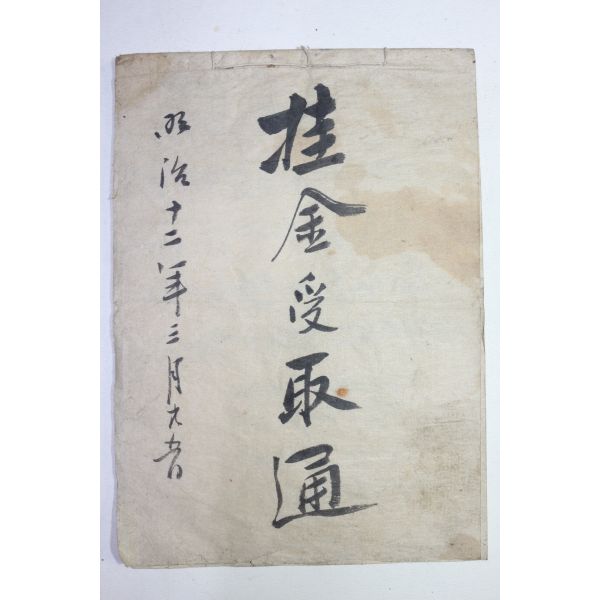 挂金受取通
明治十二年三月九